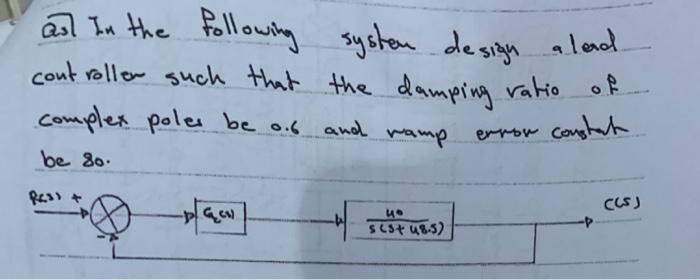 Q3) In the following system design a lead
controller such that the damping ratio of
complex poles be 0.6 and ramp error constat
be 80.
R(s) + Gc(s) 40 C(s)
- s(s+48.5)